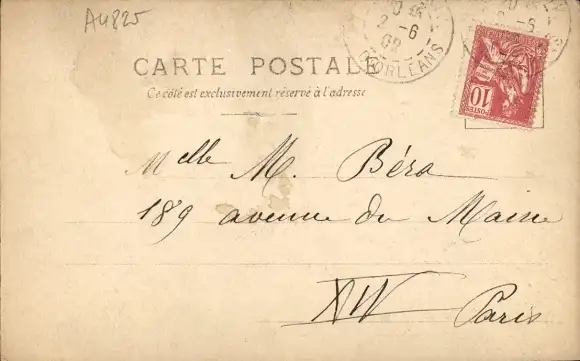 A4825
2 -6
02
D'ORLEANS
CARTE POSTALE
Ce côté est exclusivement réservé à l'adresse
POSTES
10
Melle M. Béra
189 avenue du Maine
XIV Paris